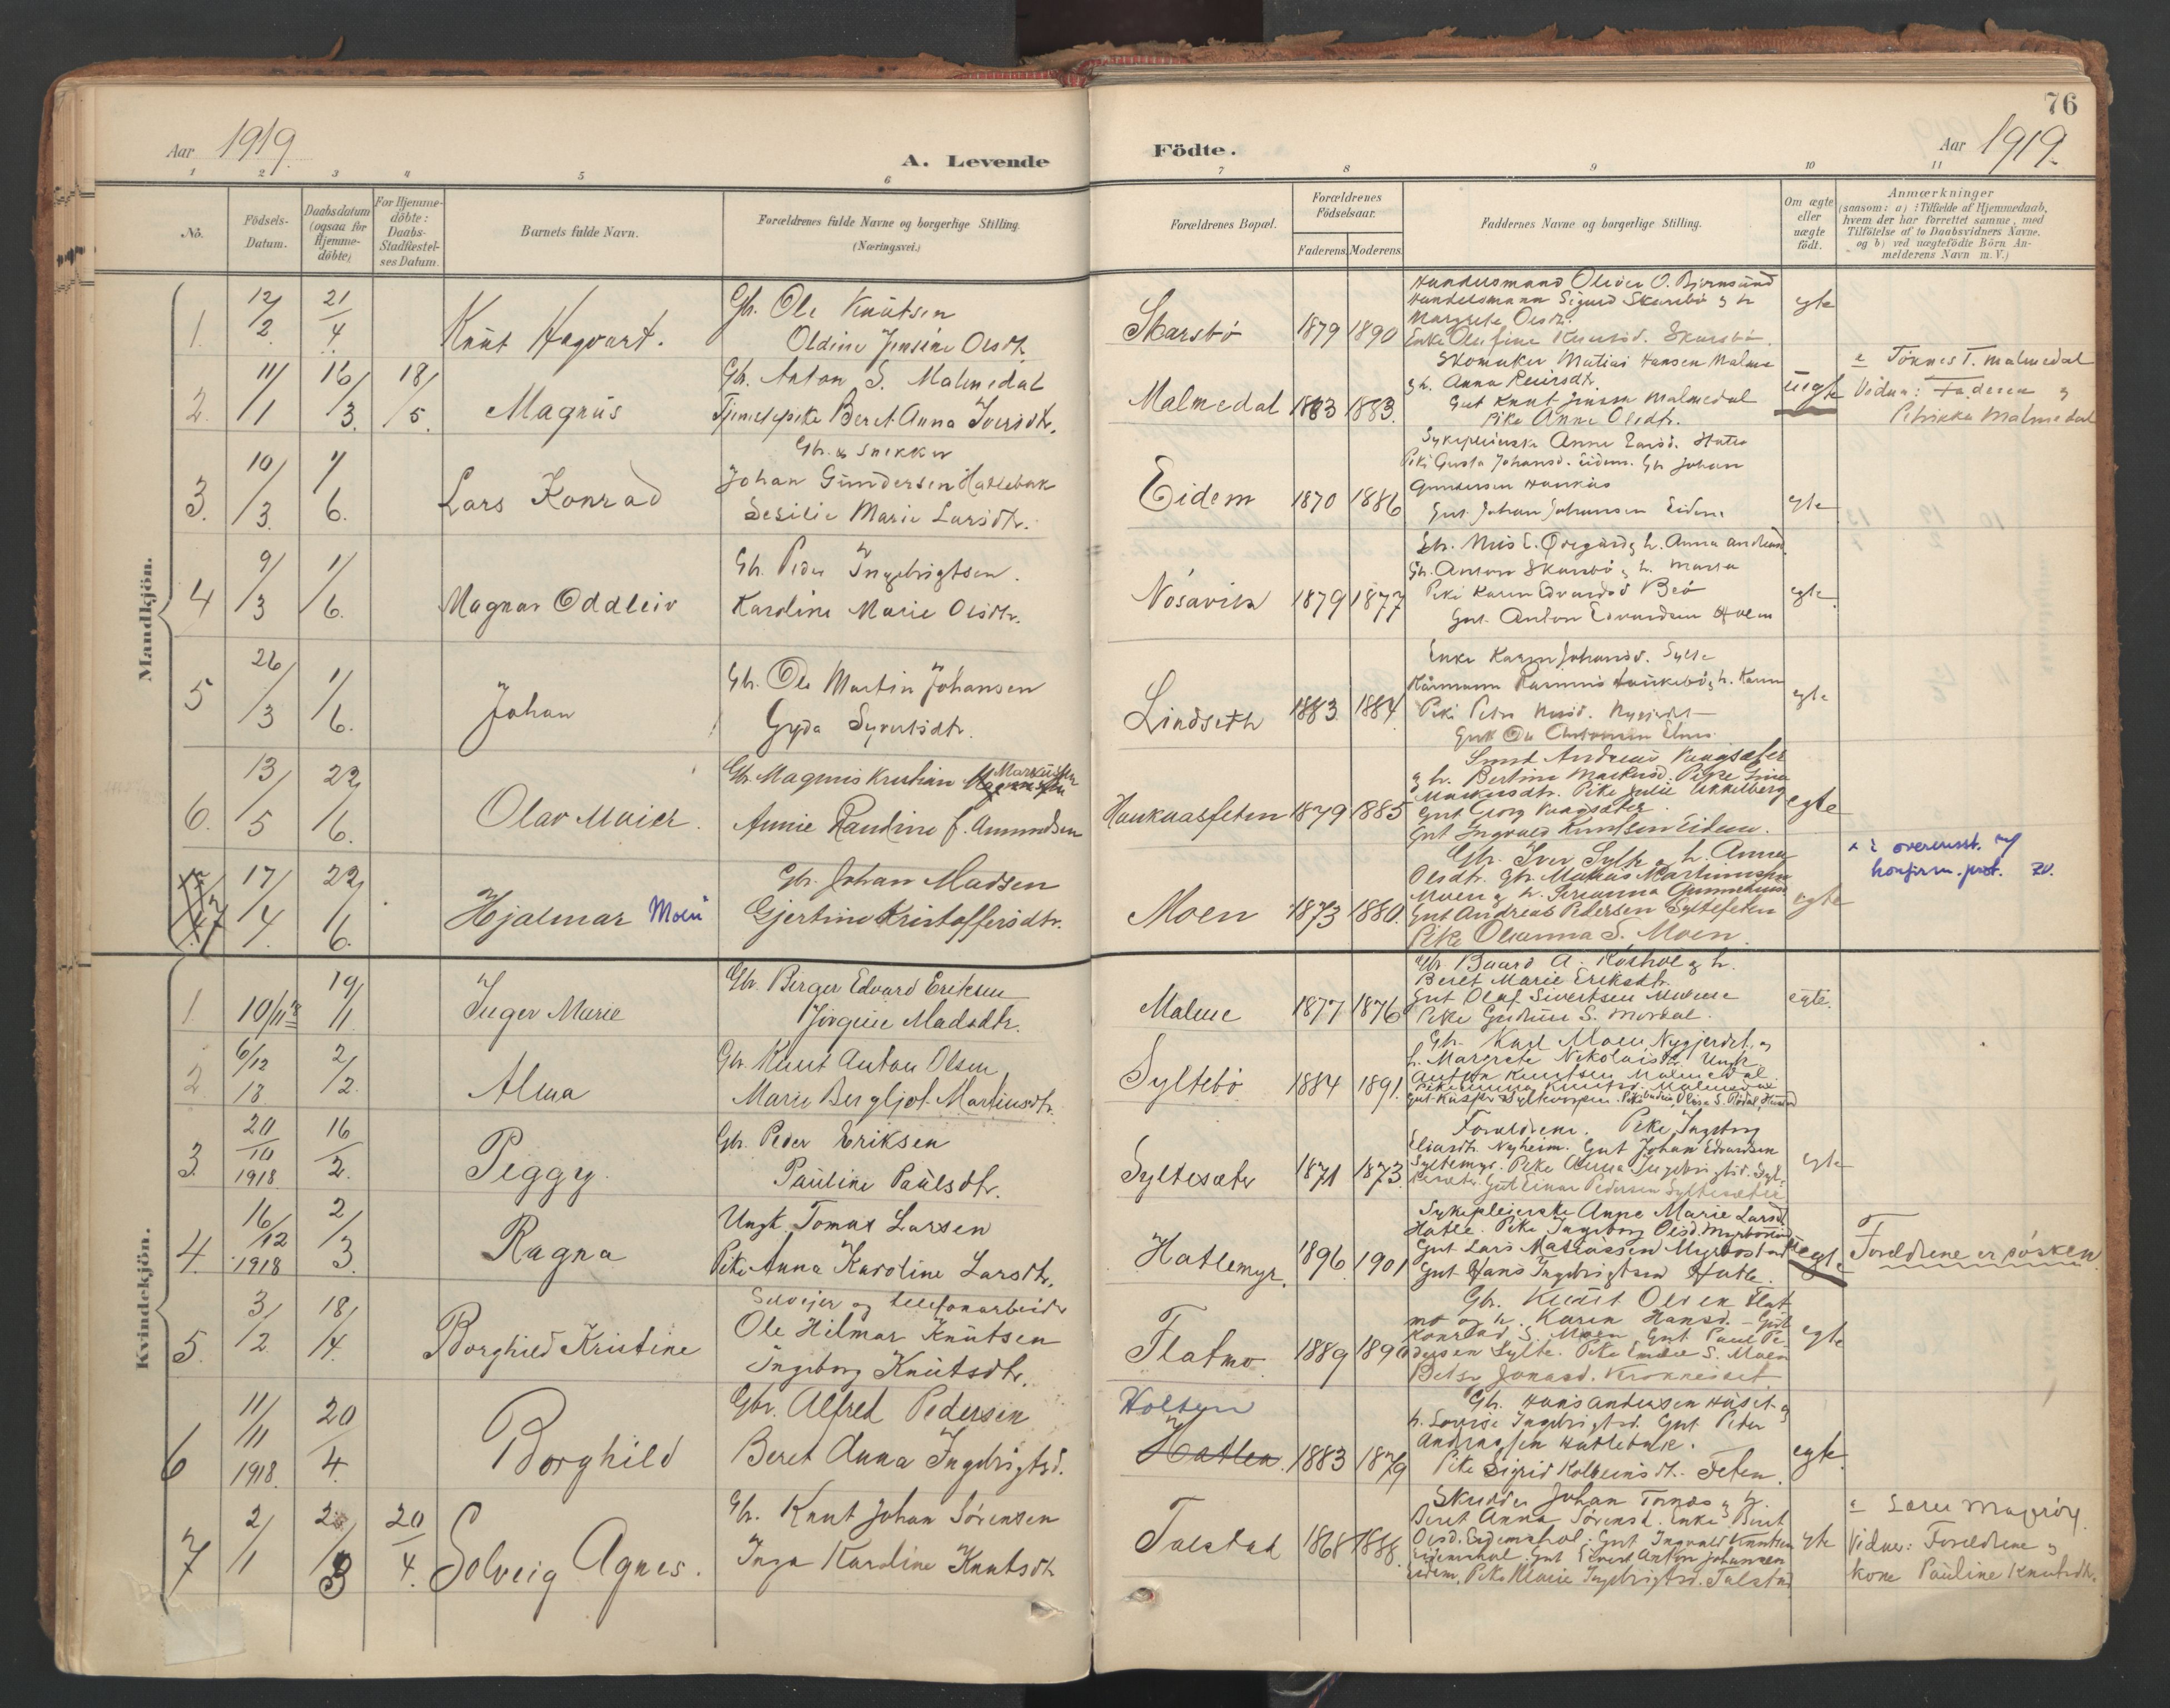 76
Aar 1919.
A. Levende
Födte.
Aar 1919.
1 2 3 4 5 6 7 8 9 10 11
No.
Födsels-
Datum.
Daabsdatum
(ogsaa for
Hjemme-
döbte)
For Hjemme-
döbte:
Daabs-
Stadfæstel-
ses Datum.
Barnets fulde Navn.
Forældrenes fulde Navne og borgerlige Stilling.
(Næringsvei.)
Forældrenes Bopæl.
Forældrenes
Födselsaar.
Faderens. Moderens.
Faddernes Navne og borgerlige Stilling.
Om ægte
eller
uægte
födt.
Anmærkninger
(saasom: a) i Tilfælde af Hjemmedaab,
hvem der har forrettet samme, med
Tilföielse af to Daabsvidners Navne.
og b) ved uægtefödte Börn An-
melderens Navn m. V.)
Mandkjön.
1. 12/2 21/4 Knut Hagvart.
Gbr. Ole Knutsen
Oldine Jensine Olsdtr.
Skarsbö 1879 1890
Handelsmand Oluder O. Bjørnsund
Handelsmann Sigurd Skarsbö og h.
Margrete Olsdtr.
Enke Olufine Knutsd. Skarsbö.
egte
2. 11/1 16/3 18/5 Magnus
Gbr. Anton S. Malmedal
Tjenestepike Beret Anna Iversdtr.
Malmedal 1883 1883.
Skomaker Matias Hansen Malme
og h. Anna
Gut Knut Jensen Malmedal
Pike Anne Olsdtr.
uegte
Tønnes T. Malmedal
Vidner: Faderen og
Petrikka Malmedal
3. 10/3 1/6 Lars Konrad
Gbr. & snekker
Johan Gundersen Hatlebak
Sesilie Marie Larsdtr.
Eidem 1870 1886
Sykepleierske Anne Larsd. Hatle
Pike Gusta Johansd. Eidem. Gbr Johan
Gundersen Haukaas
Gut Johan Johansen Eidem
egte
4 9/3 1/6 Magnar Oddleiv
Gbr. Peder Ingebrigtsen.
Karoline Marie Olsdtr.
Nösavik 1879 1877
Gbr. Nils E. Ødegård og h. Anna Andreasd.
Gbr. Anton Skarsbö og h. Marta
Pike Karen Edvardsd Bö
Gut Anton Edvardsen Holm
egte.
5 26/3 1/6 Johan
Gbr. Ole Martin Johansen
Gyda Syvertsdtr.
Lindseth 1883 1884
Enke Karen Johansd. Sylte
Kårmann Rasmus Haukebö og h. Karen
Pike Petra Nilsd. Nygjerdet
Gutt Ole
egte
6. 13/5 22/6 Olav Meier.
Gbr. Magnus Kristian Markussen
Annie Pauline f. Amundsen
Haukaasfeten 1879 1885
Smed Andreas Vaagsæter
og h. Bertine Markusd. Pike Lina
Markusdtr. Pike Julie Ukkelberg
Gut Georg Vaagsæter.
Gut Ingvald Knutsen Eidem.
egte
7 17/4. 22/6. Hjalmar Moen
Gbr. Johan Madsen
Gjertine Kristoffersdtr.
Moen 1873 1880.
Gbr. Iver Sylte og h. Anna
Olsdtr. Gbr. Mathias Martinussen
Moen og h. Serianna Gunnersd
Gut Andreas Pedersen Syltefeten
Pike Oleanna S. Moen.
egte
x i overensst. m/
konfirm. prot.
Kvindekjön.
1 10/11 18 19/1 Inger Marie
Gbr. Berger Edvard Eriksen
Jörgine Madsdtr.
Malme 1877 1876
Gbr. Baard A. Roshol og h.
Beret Marie Eriksdtr.
Gut Olaf Sivertsen Malme
Pike Gudrun S. Mordal.
egte.
2 6/12 18 2/2. Alma
Gbr. Knut Anton Olsen
Marie Bergljot Martinusdtr.
Syltebö 1884 1891.
Gbr. Karl Moen, Nygjerdet og
h. Margrete Nikolaisdtr. Ungk.
Anton Knutsen Malmedal.
Pike Anna Knutsd. Malmedal
3 20/10 1918 16/2. Peggy.
Gbr. Peder Eriksen
Pauline Paulsdtr.
Syltesæter 1871 1873.
Foreldrene. Pike Ingeborg
Eliasdtr. Nyheim. Gut Johan Edvardsen
Syltemyr. Pike Anna Ingebrigtsd. Syl-
tesæter. Gut Einar Pedersen Syltesæter
egte
4. 16/12 1918 2/3. Ragna
Ungk. Tomas Larsen
Pike Anna Karoline Larsdtr.
Hatlemyr. 1896 1901
Sykepleierske Anne Marie Larsd
Hatle. Pike Ingeborg Olsd. Myrbostad
Gut Lars Mathiassen Myrbostad
Gut Hans Ingebrigtsen Hatle.
uegte
Foreldrene er søsken.
5. 3/2. 18/4. Borghild Kristine
Selveier og telefonarbeider
Ole Hilmar Knutsen
Ingeborg Knutsdtr.
Flatmo 1889 1890
Gbr. Knut Olsen Flat
mo og h. Karen Hansd. - Gut
Konrad S. Moen Gut Paul Pe
dersen Sylte. Pike Emelie S. Moen
Betsy Jonasd. Kronneset
egte
6 11/11 1918. 20/4. Borghild
Gbr. Alfred Pedersen
Beret Anna Ingebrigtsd.
Holten
Hatlen. 1883 1879
Gbr. Hans Andersen Huset og
h. Lovise Ingebrigtsd. Gut Peter
Andreassen Hatlebak.
Pike Sigrid Kolbeinsdt. Feten.
egte
7 2/1 2/3 20/4. Solveig Agnes.
Gbr. Knut Johan Sörensen
Inga Karoline Knutsdtr
Talstad 1868 1888.
Skredder Johan Tornes og h.
Beret Anna Sörensd. Enke Beret
Olsd. Eidemshol. Gut Ingvald Knutsen
Eidemshol. Gut Edvard Anton Johansen
Eidem. Pike Marie Ingebrigtsd. Talstad
egte
Lærer Magerøy.
Vidner: Foreldrene og
kone Pauline Knutsdtr.